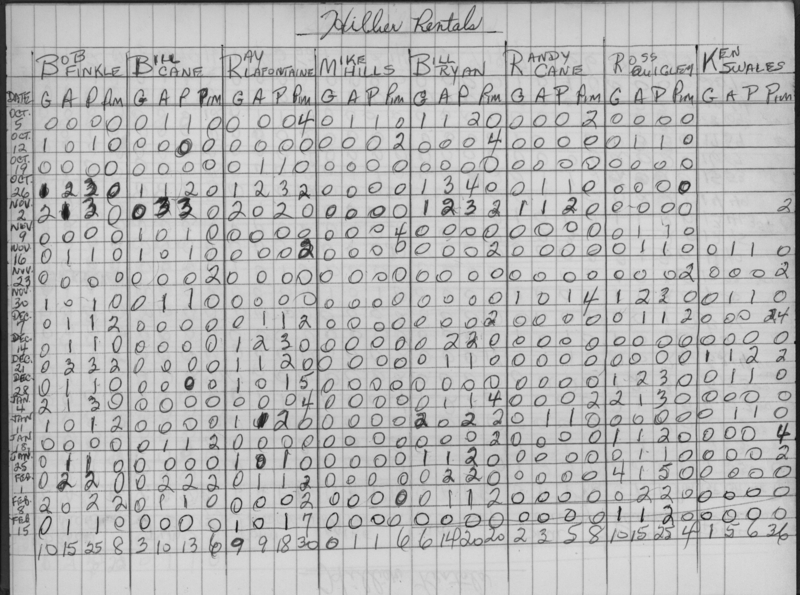 Hillier Rentals
BOB FINKLE BILL CANE RAY LAFONTAINE MIKE HILLS BILL RYAN RANDY CANE ROSS QUIGLEY KEN SWALES
DATE G A P Pim G A P Pim G A P Pim G A P Pim G A P Pim G A P Pim G A P Pim G A P Pim
OCT. 5 0 0 0 0 0 1 1 0 0 0 0 4 0 1 1 0 1 1 2 0 0 0 0 2 0 0 0 0
OCT. 12 1 0 1 0 0 0 0 0 0 0 0 0 0 0 0 2 0 0 0 4 0 0 0 0 0 1 1 0
OCT. 19 0 0 0 0 0 0 0 0 0 1 1 0 0 0 0 0 0 0 0 0 0 0 0 0 0 0 0 0
OCT. 26 1 2 3 0 1 1 2 0 1 2 3 2 0 0 0 0 1 3 4 0 0 1 1 0 0 0 0 0
NOV. 2 2 1 3 0 0 3 3 0 2 0 2 0 0 0 0 0 1 2 3 2 1 1 2 0 0 0 0 0 2
NOV 9 0 0 0 0 1 0 1 0 0 0 0 0 0 0 0 4 0 0 0 0 0 0 0 0 0 1 1 0
NOV 16 0 1 1 0 1 0 1 0 0 0 0 2 0 0 0 0 0 0 0 2 0 0 0 0 0 1 1 0 0 1 1 0
NOV. 23 0 0 0 0 0 0 0 2 0 0 0 0 0 0 0 0 0 0 0 0 0 0 0 0 0 0 0 2 0 0 0 2
NOV. 30 1 0 1 0 0 1 1 0 0 0 0 0 0 0 0 0 0 0 0 0 1 0 1 4 1 2 3 0 0 1 1 0
DEC. 7 0 1 1 2 0 0 0 0 0 1 1 2 0 0 0 0 0 0 0 2 0 0 0 0 0 1 1 2 0 0 0 24
DEC. 14 0 1 1 0 0 0 0 0 1 2 3 0 0 0 0 0 0 2 2 0 0 0 0 0 0 0 0 0 0 0 0 0
DEC. 21 0 3 3 2 0 0 0 0 1 1 2 0 0 0 0 0 0 1 1 0 0 0 0 0 0 0 0 0 1 1 2 2
DEC. 28 0 1 1 0 0 0 0 0 1 0 1 5 0 0 0 0 0 0 0 0 0 0 0 0 1 2 3 0 0 1 1 0
JAN 4 2 1 3 0 0 0 0 0 0 0 0 4 0 0 0 0 0 1 1 4 0 0 0 2 2 1 3 0 0 0 0 0
JAN 11 1 0 1 2 0 0 0 0 1 1 2 4 0 0 0 0 2 0 2 2 0 1 1 0 0 0 0 0 0 1 1 0
JAN 18 0 0 0 0 0 1 1 2 0 0 0 0 0 0 0 0 0 0 0 2 0 0 0 0 1 1 2 0 0 0 0 4
JAN. 25 0 1 1 0 0 0 0 0 1 0 1 0 0 0 0 0 1 1 2 0 0 0 0 0 0 1 1 0 0 0 0 2
FEB. 0 2 2 0 0 2 2 2 0 1 1 2 0 0 0 0 0 2 2 0 0 0 0 0 4 1 5 0 0 0 0 0
FEB. 8 2 0 2 2 0 1 1 0 0 0 0 2 0 0 0 0 0 1 1 2 0 0 0 0 0 2 2 0 0 0 0 0
FEB 15 0 1 1 0 0 0 0 0 1 0 1 7 0 0 0 0 0 0 0 0 0 0 0 0 1 1 2 0 0 0 0 0
10 15 25 8 3 10 13 6 9 9 18 30 0 1 1 6 6 14 20 20 2 3 5 8 10 15 25 4 1 5 6 36